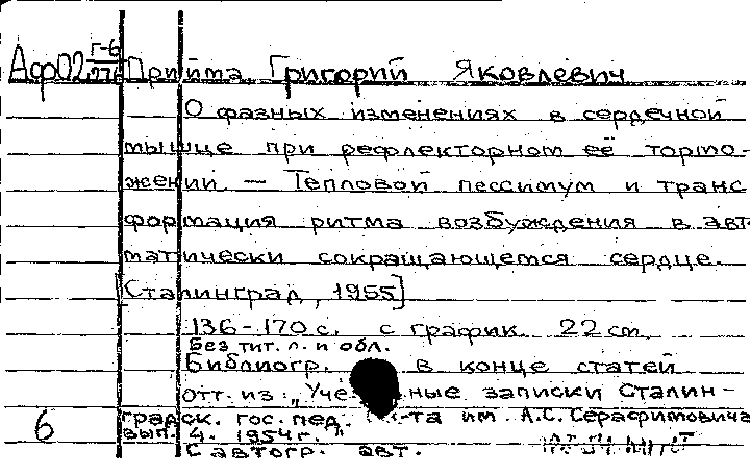 Афр02 Г-6/276 Прийма, Григорий Яковлевич
О фазных изменениях в сердечной
мышце при рефлекторном её тормо-
жений. — Тепловой пессимум и транс
формация ритма возбуждения в авт
матически сокращающемся сердце.
[Сталинград, 1955]
136-170 с. с график. 22 см.
Без тит. л. и обл.
Библиогр. в конце статей
отт. из: „Учё ные записки Сталин-
6 градск. гос. пед. та им. А.С. Серафимовича
вып. 4. 1954 г."
С автогр. авт.